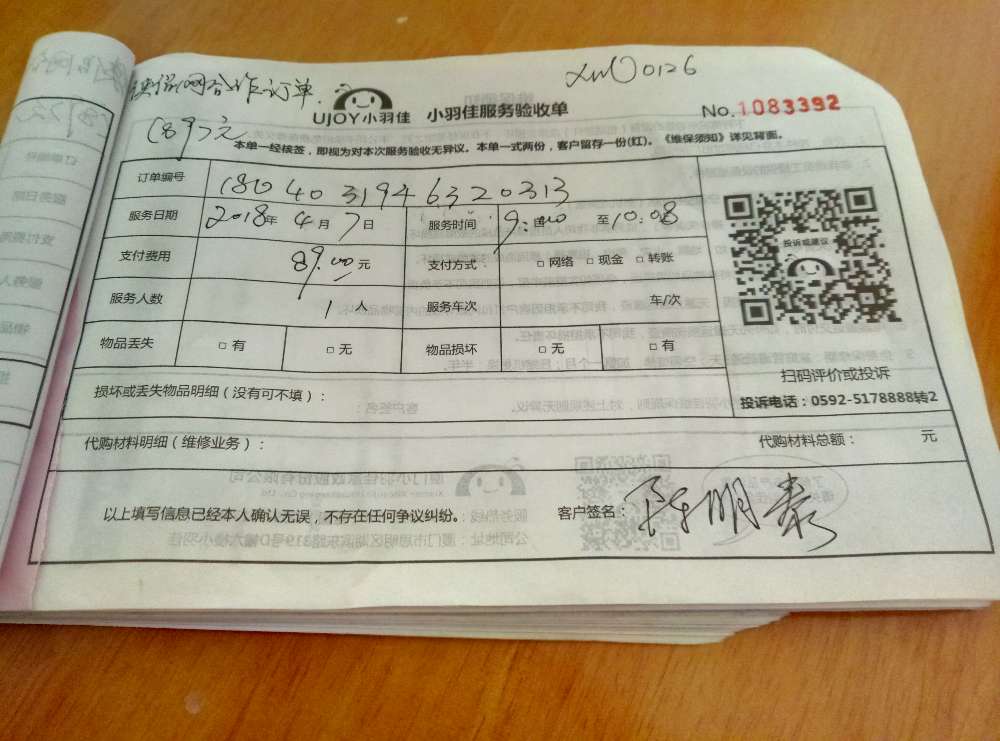 合作订单
0126
UJOY小羽佳 小羽佳服务验收单
No.1083392
(89)元
本单一经核签，即视为对本次服务验收无异议。本单一式两份，客户留存一份(红)。《维保须知》详见背面。
订单编号 1804031946320313
服务日期 2018年4月7日 服务时间 9:00 至10:08
支付费用 89.00元 支付方式： □网络 □现金 □转账
服务人数 1人 服务车次 车/次
物品丢失 □有 □无 物品损坏 □无 □有
投诉或建议
扫码评价或投诉
投诉电话：0592-5178888转2
损坏或丢失物品明细（没有可不填）：
代购材料明细（维修业务）： 代购材料总额： 元
以上填写信息已经本人确认无误，不存在任何争议纠纷。 客户签名：陈明泰